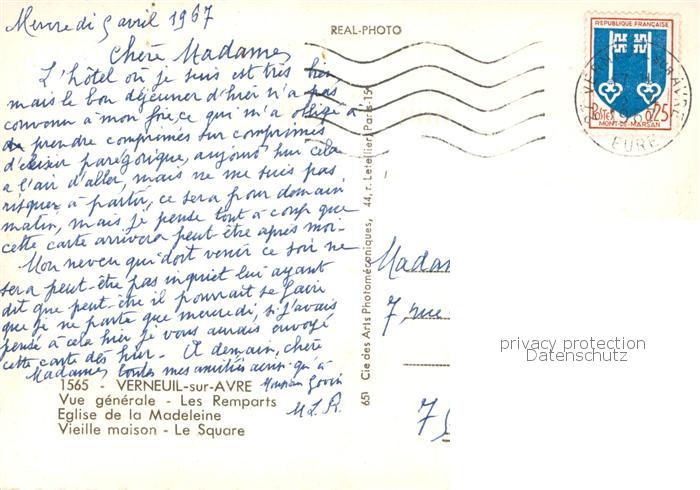 Mercredi 5 avril 1967
REAL-PHOTO
Chère Madame,
L'hôtel où je suis est très bien,
mais le bon déjeuner d'hier n'a pas
convenu à mon foie, ce qui m'a obligé à
prendre comprimés sur comprimés
d'élixir parégorique, aujourd'hui cela
a l'air d'aller, mais ne me suis pas
risquée à partir, ce sera pour demain
matin, mais je pense tout à coup que
cette carte arrivera peut-être après moi-
Mon neveu qui doit venir ce soir ne
sera peut-être pas inquiet lui ayant
dit que peut-être il pourrait se faire
que je ne parte que mercredi, si j'avais
pensé à cela hier je vous aurais envoyé
cette carte dès hier. A demain, chère
Madame, toutes mes amitiés ainsi qu'à
Monsieur
M L. R.
1565 - VERNEUIL-sur-AVRE
Vue générale - Les Remparts
Eglise de la Madeleine
Vieille maison - Le Square
651 Cie des Arts Photomécaniques, 44, r. Letellier, Paris-15e
REPUBLIQUE FRANÇAISE
POSTES 0,25
MONT-DE-MARSAN
EURE
Madam
7, rue
7
privacy protection
Datenschutz